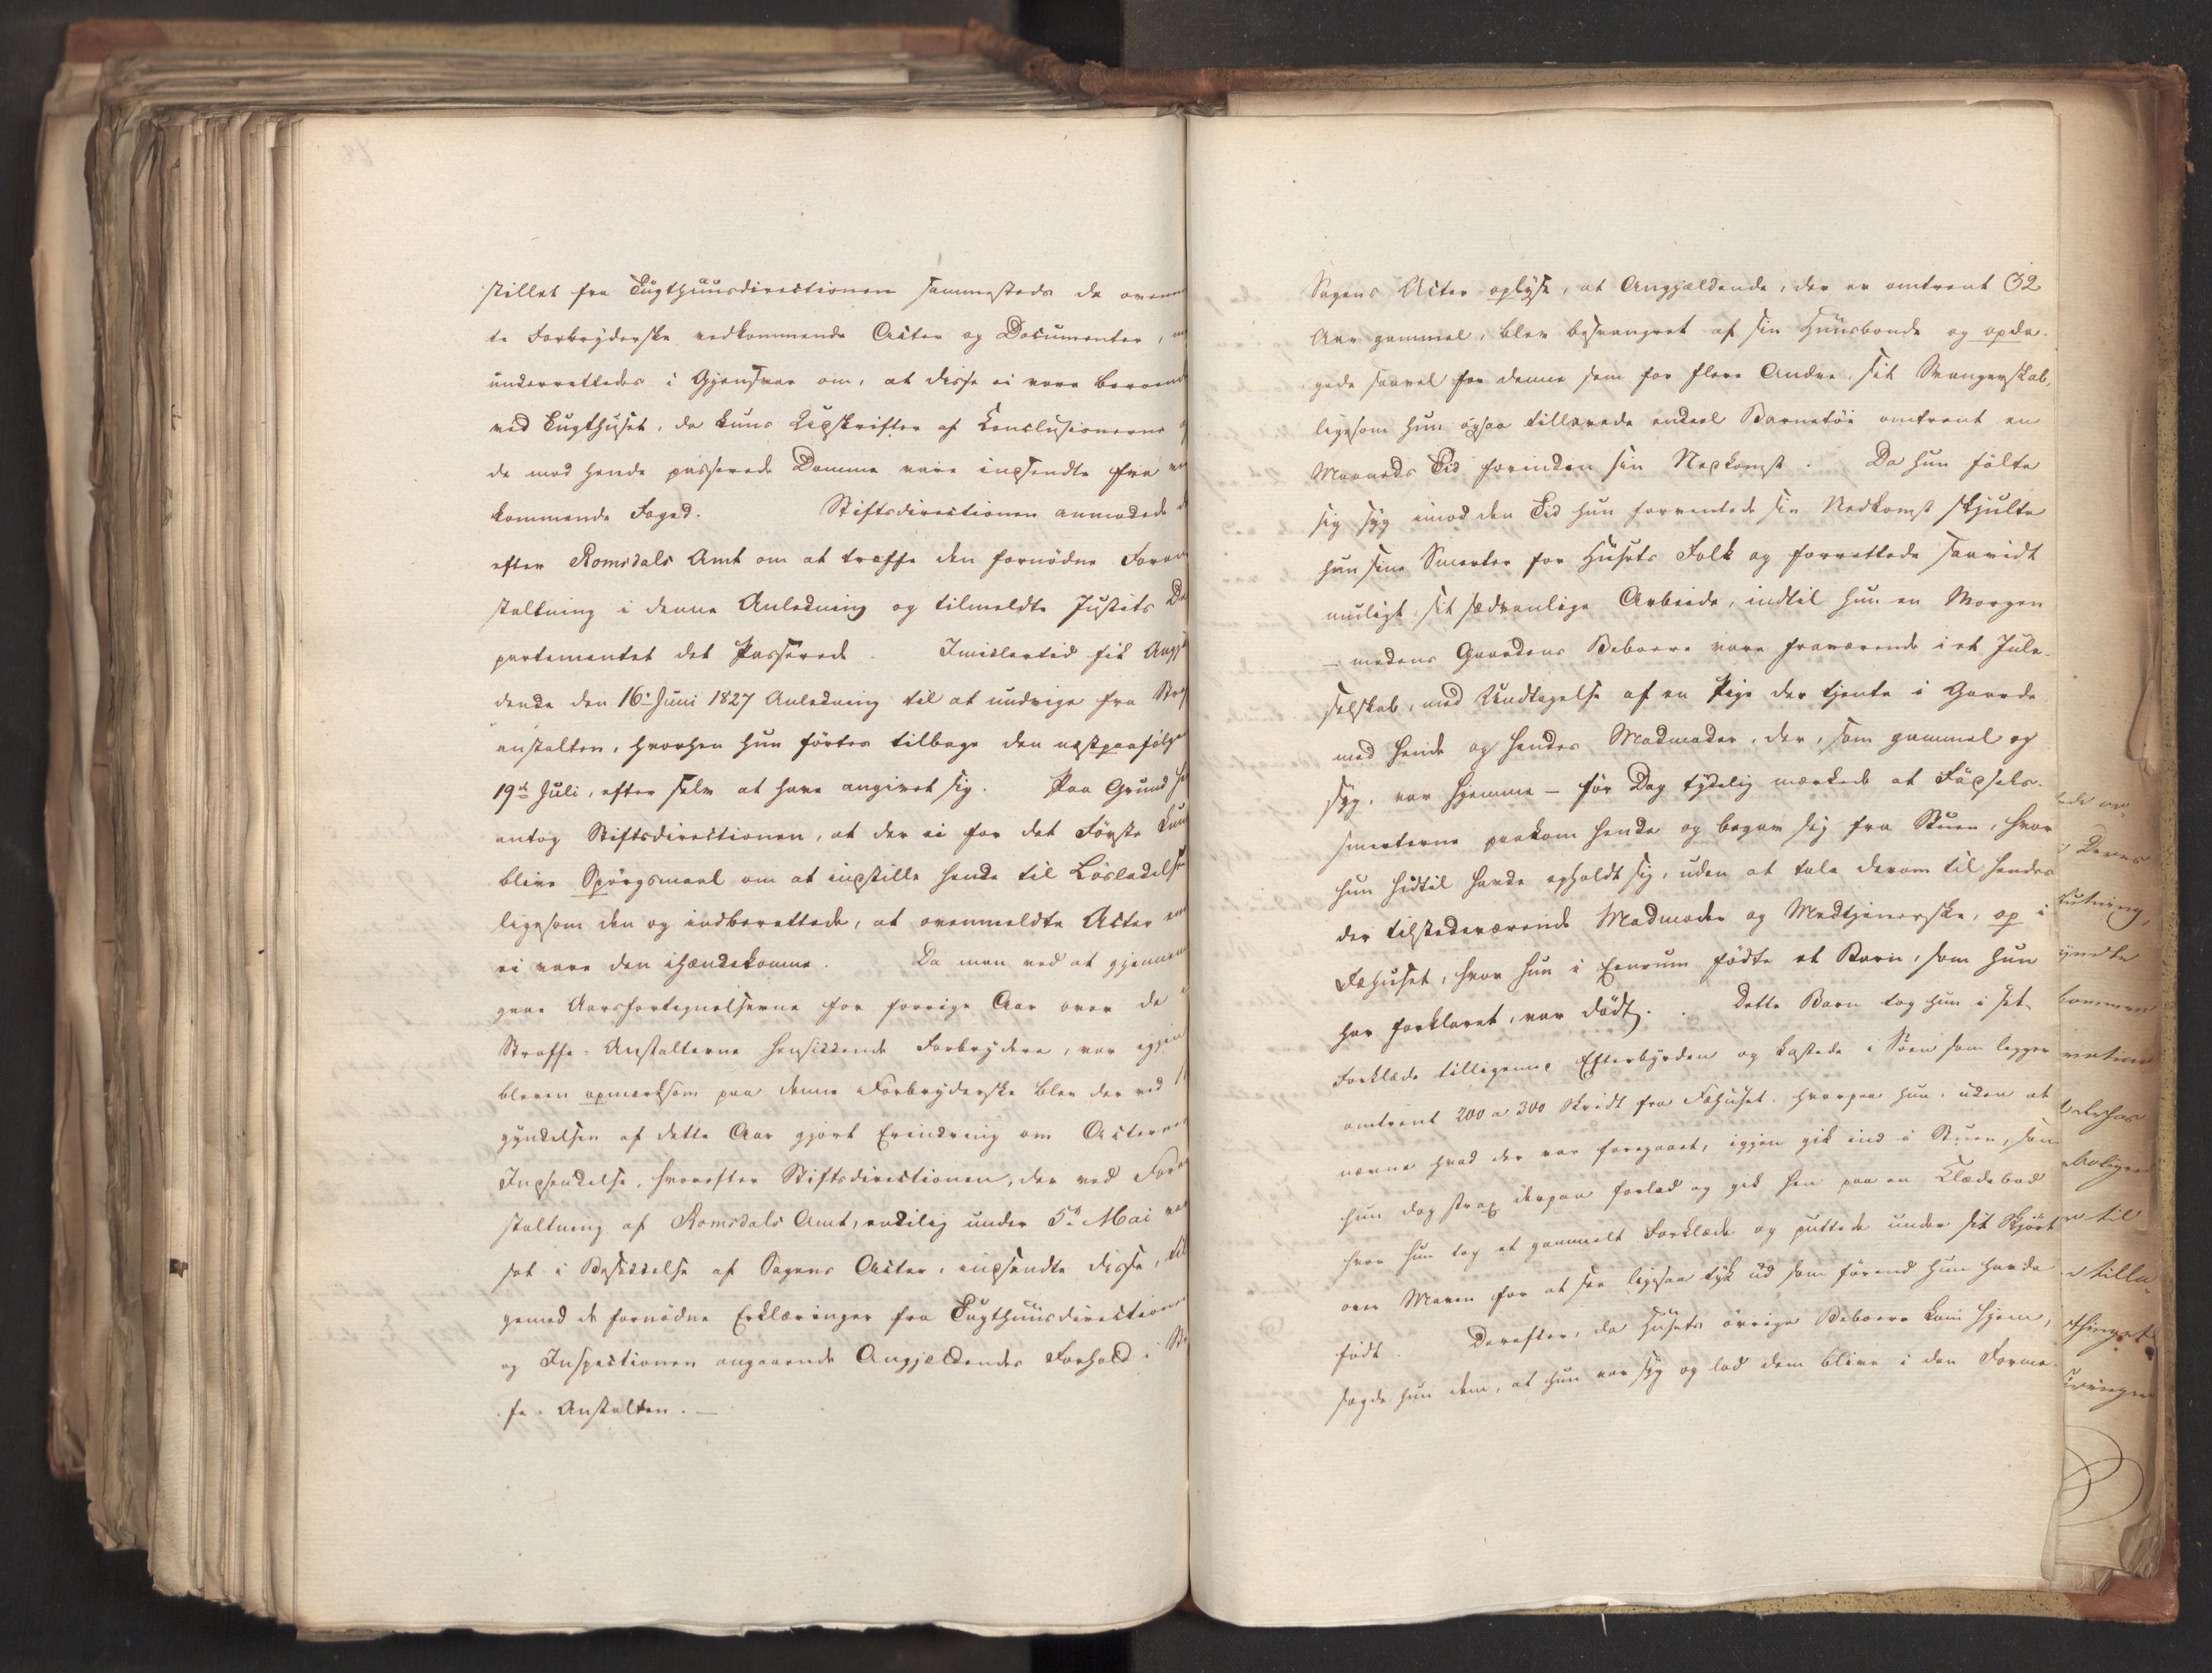 stillet fra Tugthuusdirectionen sammesteds de ovenn
te Forbryderske vedkommende Acter og Documenter, m
underrettedes i Gjensvar om, at disse ei vare beroend
ved Tugthuset, da kuns Udskrifter af Conclusionerne
de mod hende passerede Domme vare indsendte fra ved
kommende Foged. Stiftsdirectionen anmodede d
efter Romsdals Amt om at træffe den fornødne Foran
staltning i denne Anledning og tilmeldte Justits De
partementet det Passerede. Imidlertid fik Angjæl
dende den 16de Juni 1827 Anledning til at undvige fra Straf
anstalten, hvorhen hun førtes tilbage den næstpaafølge
19de Juli, efter selv at have angivet sig. Paa Grund he
antog Stiftsdirectionen, at der ei for det Første kun
blive Spørgsmaal om at indstille hende til Løsladelse
ligesom den og indberettede, at ovenmeldte Acter en
ei vare den ihændekomne. Da man ved at gjennem
gaae Aarsfortegnelserne for forrige Aar over de i
Straffe-Anstalterne hensiddende Forbrydere, var igjen
bleven opmærksom paa denne Forbryderske blev der ved
gyndelsen af dette Aar gjort Erindring om Acternes
Indsendelse, hvorefter Stiftsdirectionen, der ved Foran
staltning af Romsdals Amt, endelig under 5te Mai var
sat i Besiddelse af Sagens Acter, indsendte disse, til
gemed de fornødne Erklæringer fra Tugthuusdirection
og Inspectionen angaaende Angjældendes Forhold i Str
fe-Anstalten. —
Sagens Acter oplyse, at Angjældende, der er omtrent 32
Aar gammel, blev besvangret af sin Huusbonde og opda-
gede saavel for denne som for flere Andre, sit Svangerskab,
ligesom hun ogsaa tillavede endeel Barnetøi omtrent en
Maaneds Tid forinden sin Nedkomst. Da hun følte
sig syg imod den Tid hun forventede sin Nedkomst skjulte
hun sine Smerter for Husets Folk og forrettede saavidt
muligt sit sædvanlige Arbeide, indtil hun en Morgen
— medens Gaardens Beboere vare fraværende i et Jule-
selskab, med Undtagelse af en Pige der tjente i Gaarde
med hende og hendes Madmoder, der, som gammel og
syg, var hjemme — før Dag tydelig mærkede at Fødsels-
smerterne paakom hende og begav sig fra Stuen, hvor
hun hidtil havde opholdt sig, uden at tale derom til hendes
der tilstedeværende Madmoder og Medtjenerske, op i
Fæhuset, hvor hun i Eenrum fødte et Barn, som hun
har forklaret, var dødt. Dette Barn tog hun i sit
Forklæde tilligemed Efterbyrden og kastede i Søen som ligger
omtrent 200 a 300 Skridt fra Fæhuset, hvorpaa hun, uden at
nævne hvad der var foregaaet, igjen gik ind i Stuen, som
hun dog strax derpaa forlod og gik hen paa en Klædebod
hvor hun tog et gammelt Forklæde og puttede under sit Skjørt
over Maven for at see ligesaa tyk ud som førend hun havde
født. Derefter, da Husets øvrige Beboere kom hjem,
sagde hun dem, at hun var syg og lod dem blive i den Forme-